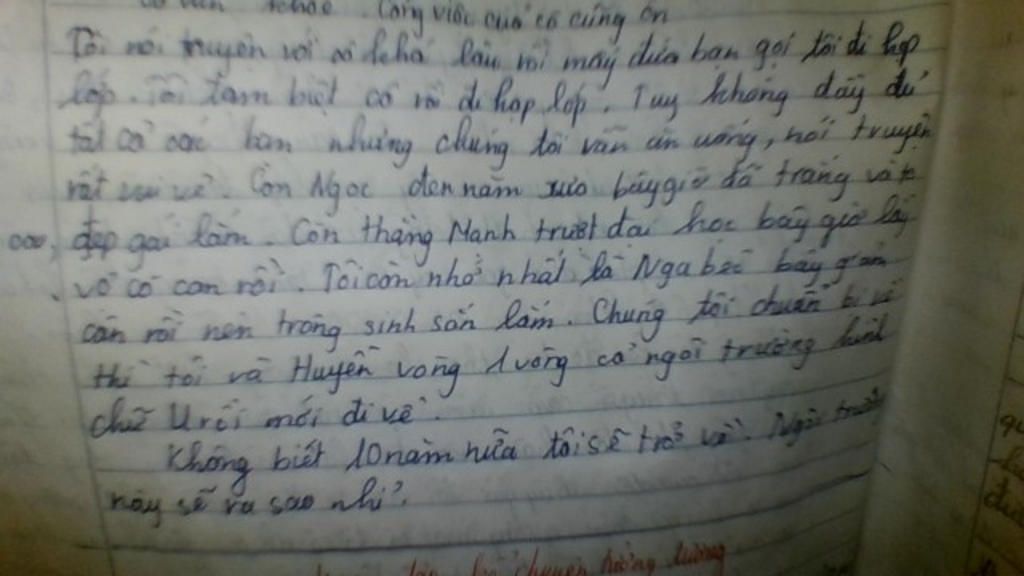 khỏe. Công việc của cô cũng ổn
Tôi nói truyện với cô khá lâu rồi mấy đứa bạn gọi tôi đi họp
lớp. Tôi tạm biệt cô rồi đi họp lớp. Tuy không đầy đủ
tất cả các bạn nhưng chúng tôi vẫn ăn uống, nói truyện
rất vui vẻ. Còn Ngọc đen năm xưa bây giờ đã trắng và
cao, đẹp gái lắm. Còn thằng Mạnh trượt đại học bây giờ lấy
vợ có con rồi. Tôi còn nhớ nhất là Nga béo bây giờ
cân rồi nên trông sinh sắn lắm. Chúng tôi chuẩn bị về
thì tôi và Huyền vòng 1 vòng cả ngôi trường hình
chữ U rồi mới đi về.
Không biết 10 năm nữa tôi sẽ trở về. Ngôi trường
này sẽ ra sao nhỉ?
chuyện tưởng tượng